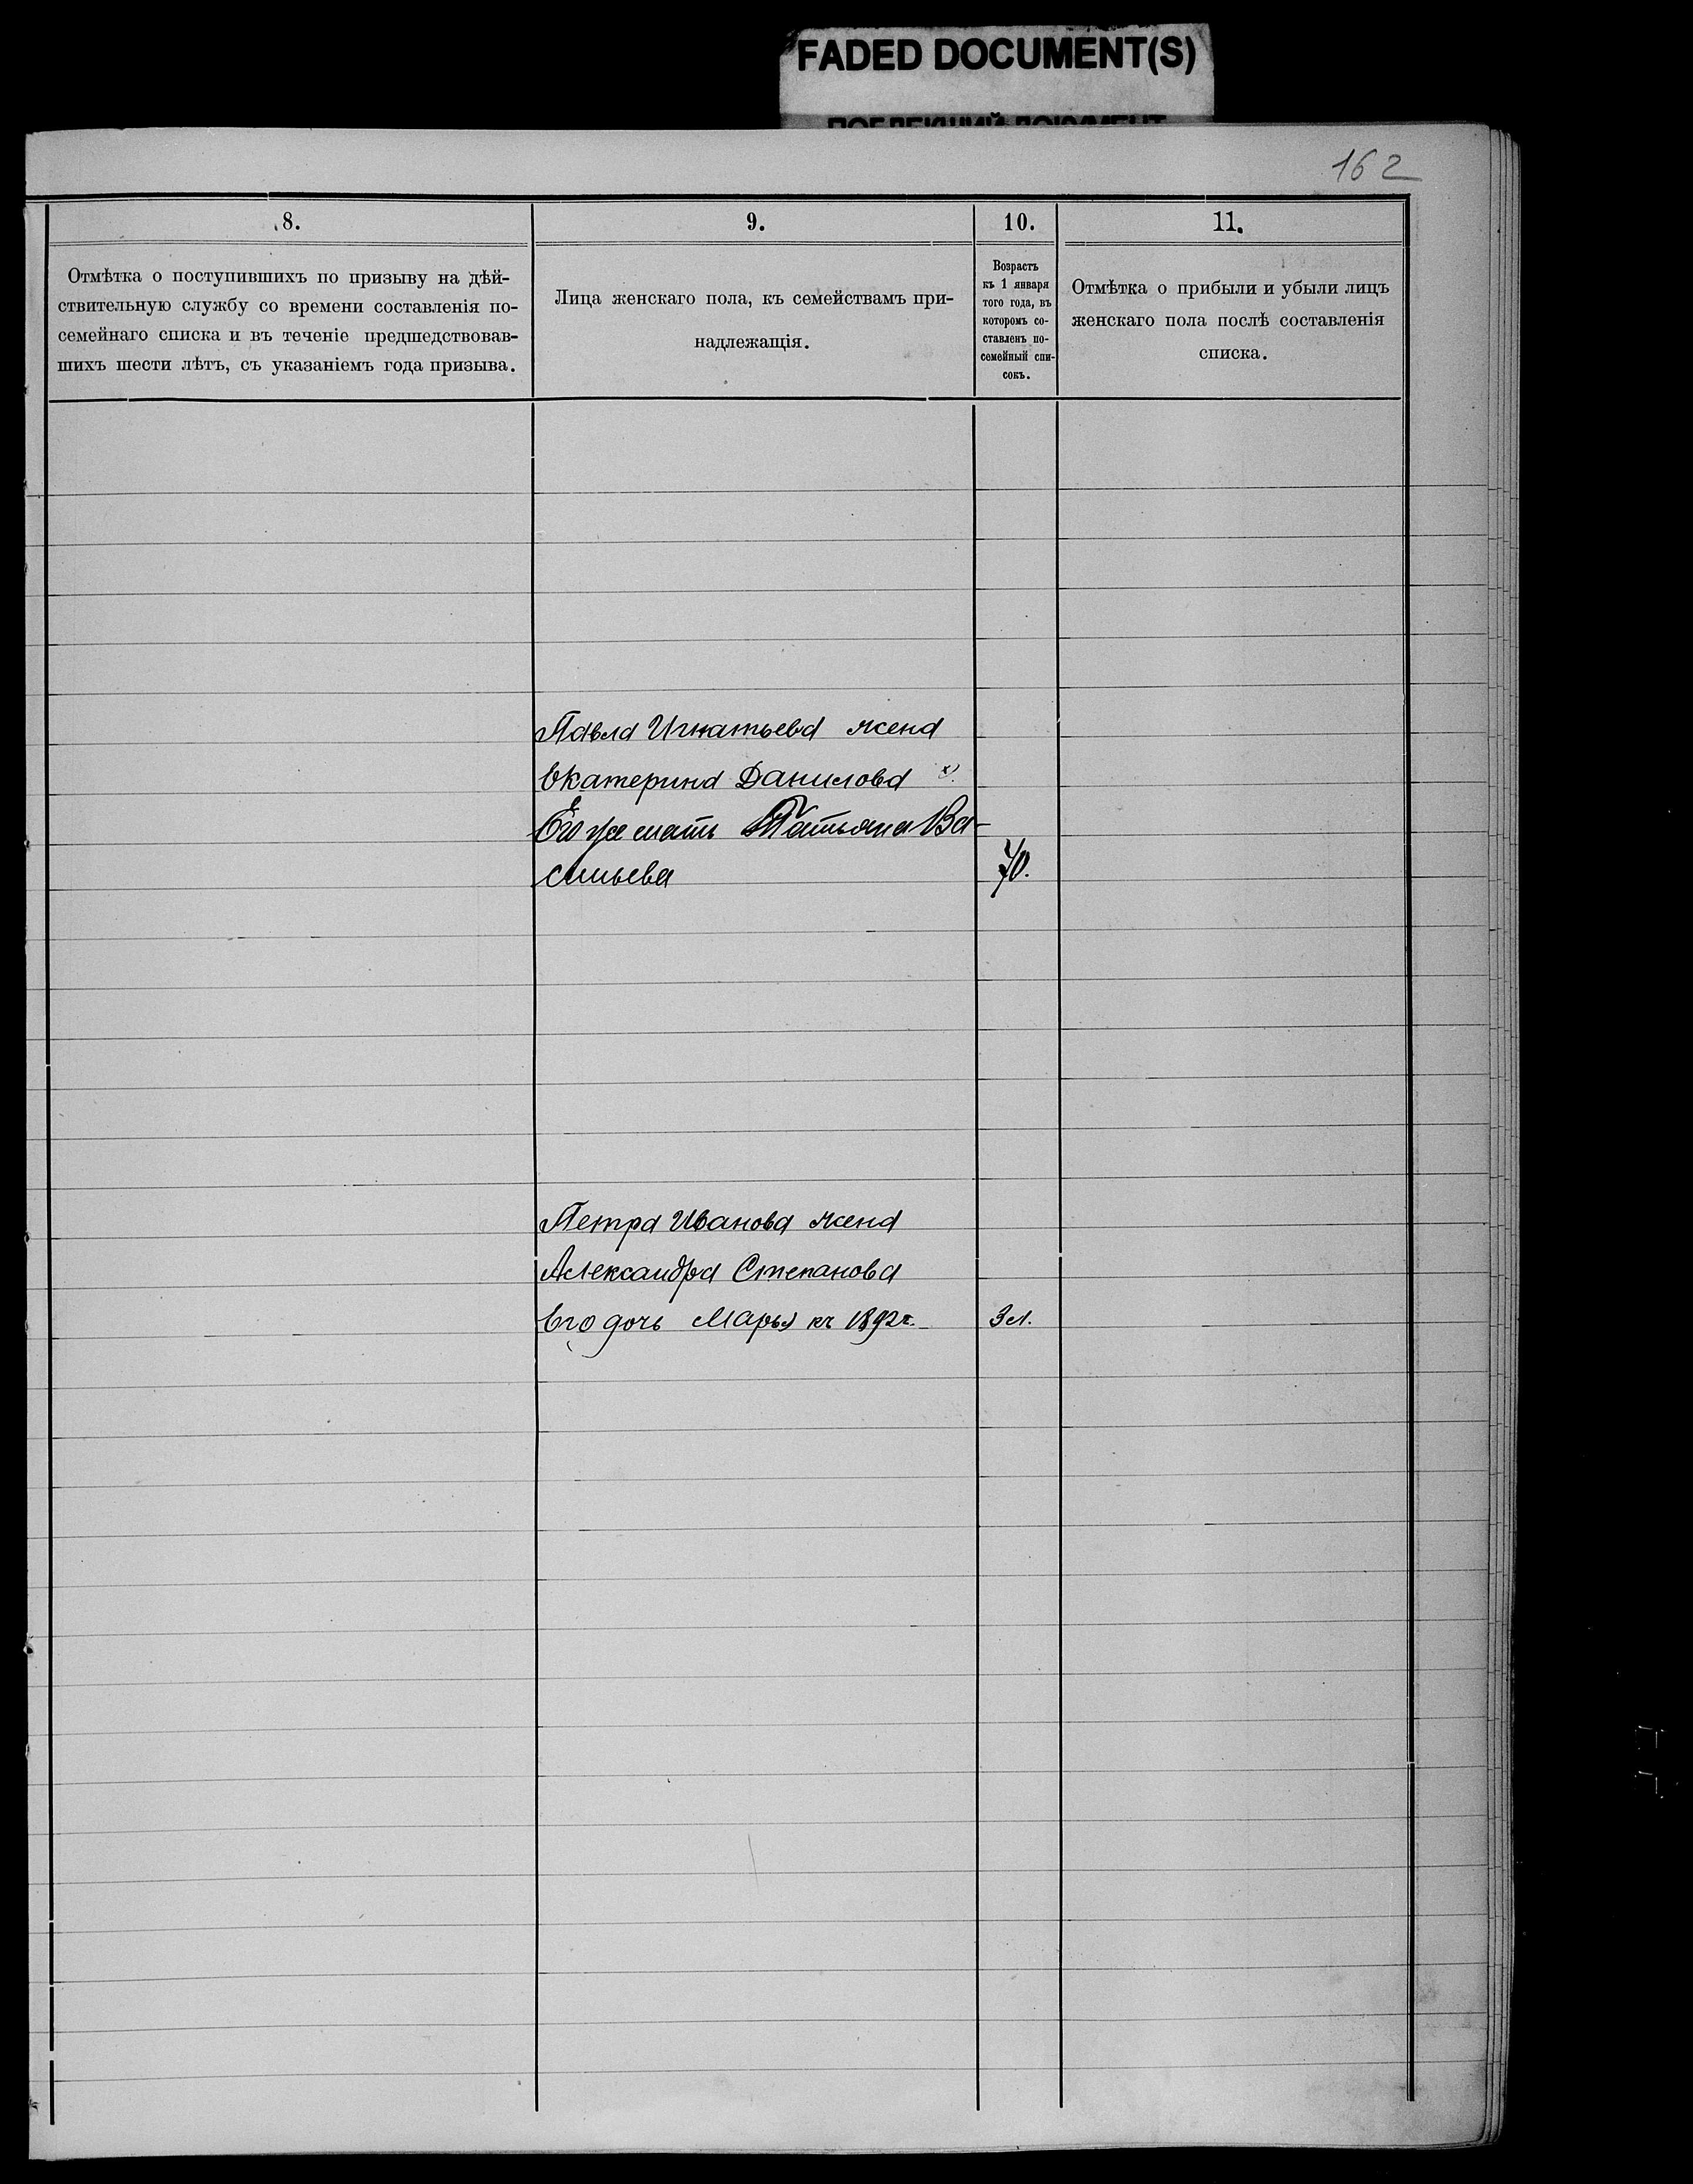 FADED DOCUMENT(S)
ПОБЛЕКШИЙ ДОКУМЕНТ
162
8.
9.
10.
11.
Отмѣтка о поступившихъ по призыву на дѣй-
ствительную службу со времени составленія по-
семейнаго списка и въ теченіе предшедствовав-
шихъ шести лѣтъ, съ указаніемъ года призыва.
Лица женскаго пола, къ семействамъ при-
надлежащія.
Возрастъ
къ 1 января
того года, въ
которомъ со-
ставленъ по-
семейный спи-
сокъ.
Отмѣтка о прибыли и убыли лицъ
женскаго пола послѣ составленія
списка.
Павла Игнатьева жена
Екатерина Данилова х)
Его же мать Татьяна Ва-
сильева 70.
Петра Иванова жена
Александра Степанова
Его дочь Марья къ 1892 г. 3 л.